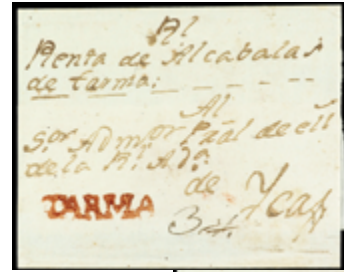 Rl
Renta de Alcabalas
de tarma:
Al
Sor. Admor Pāāl de
de la Rl. Ad.a
de Yca
TARMA
34.